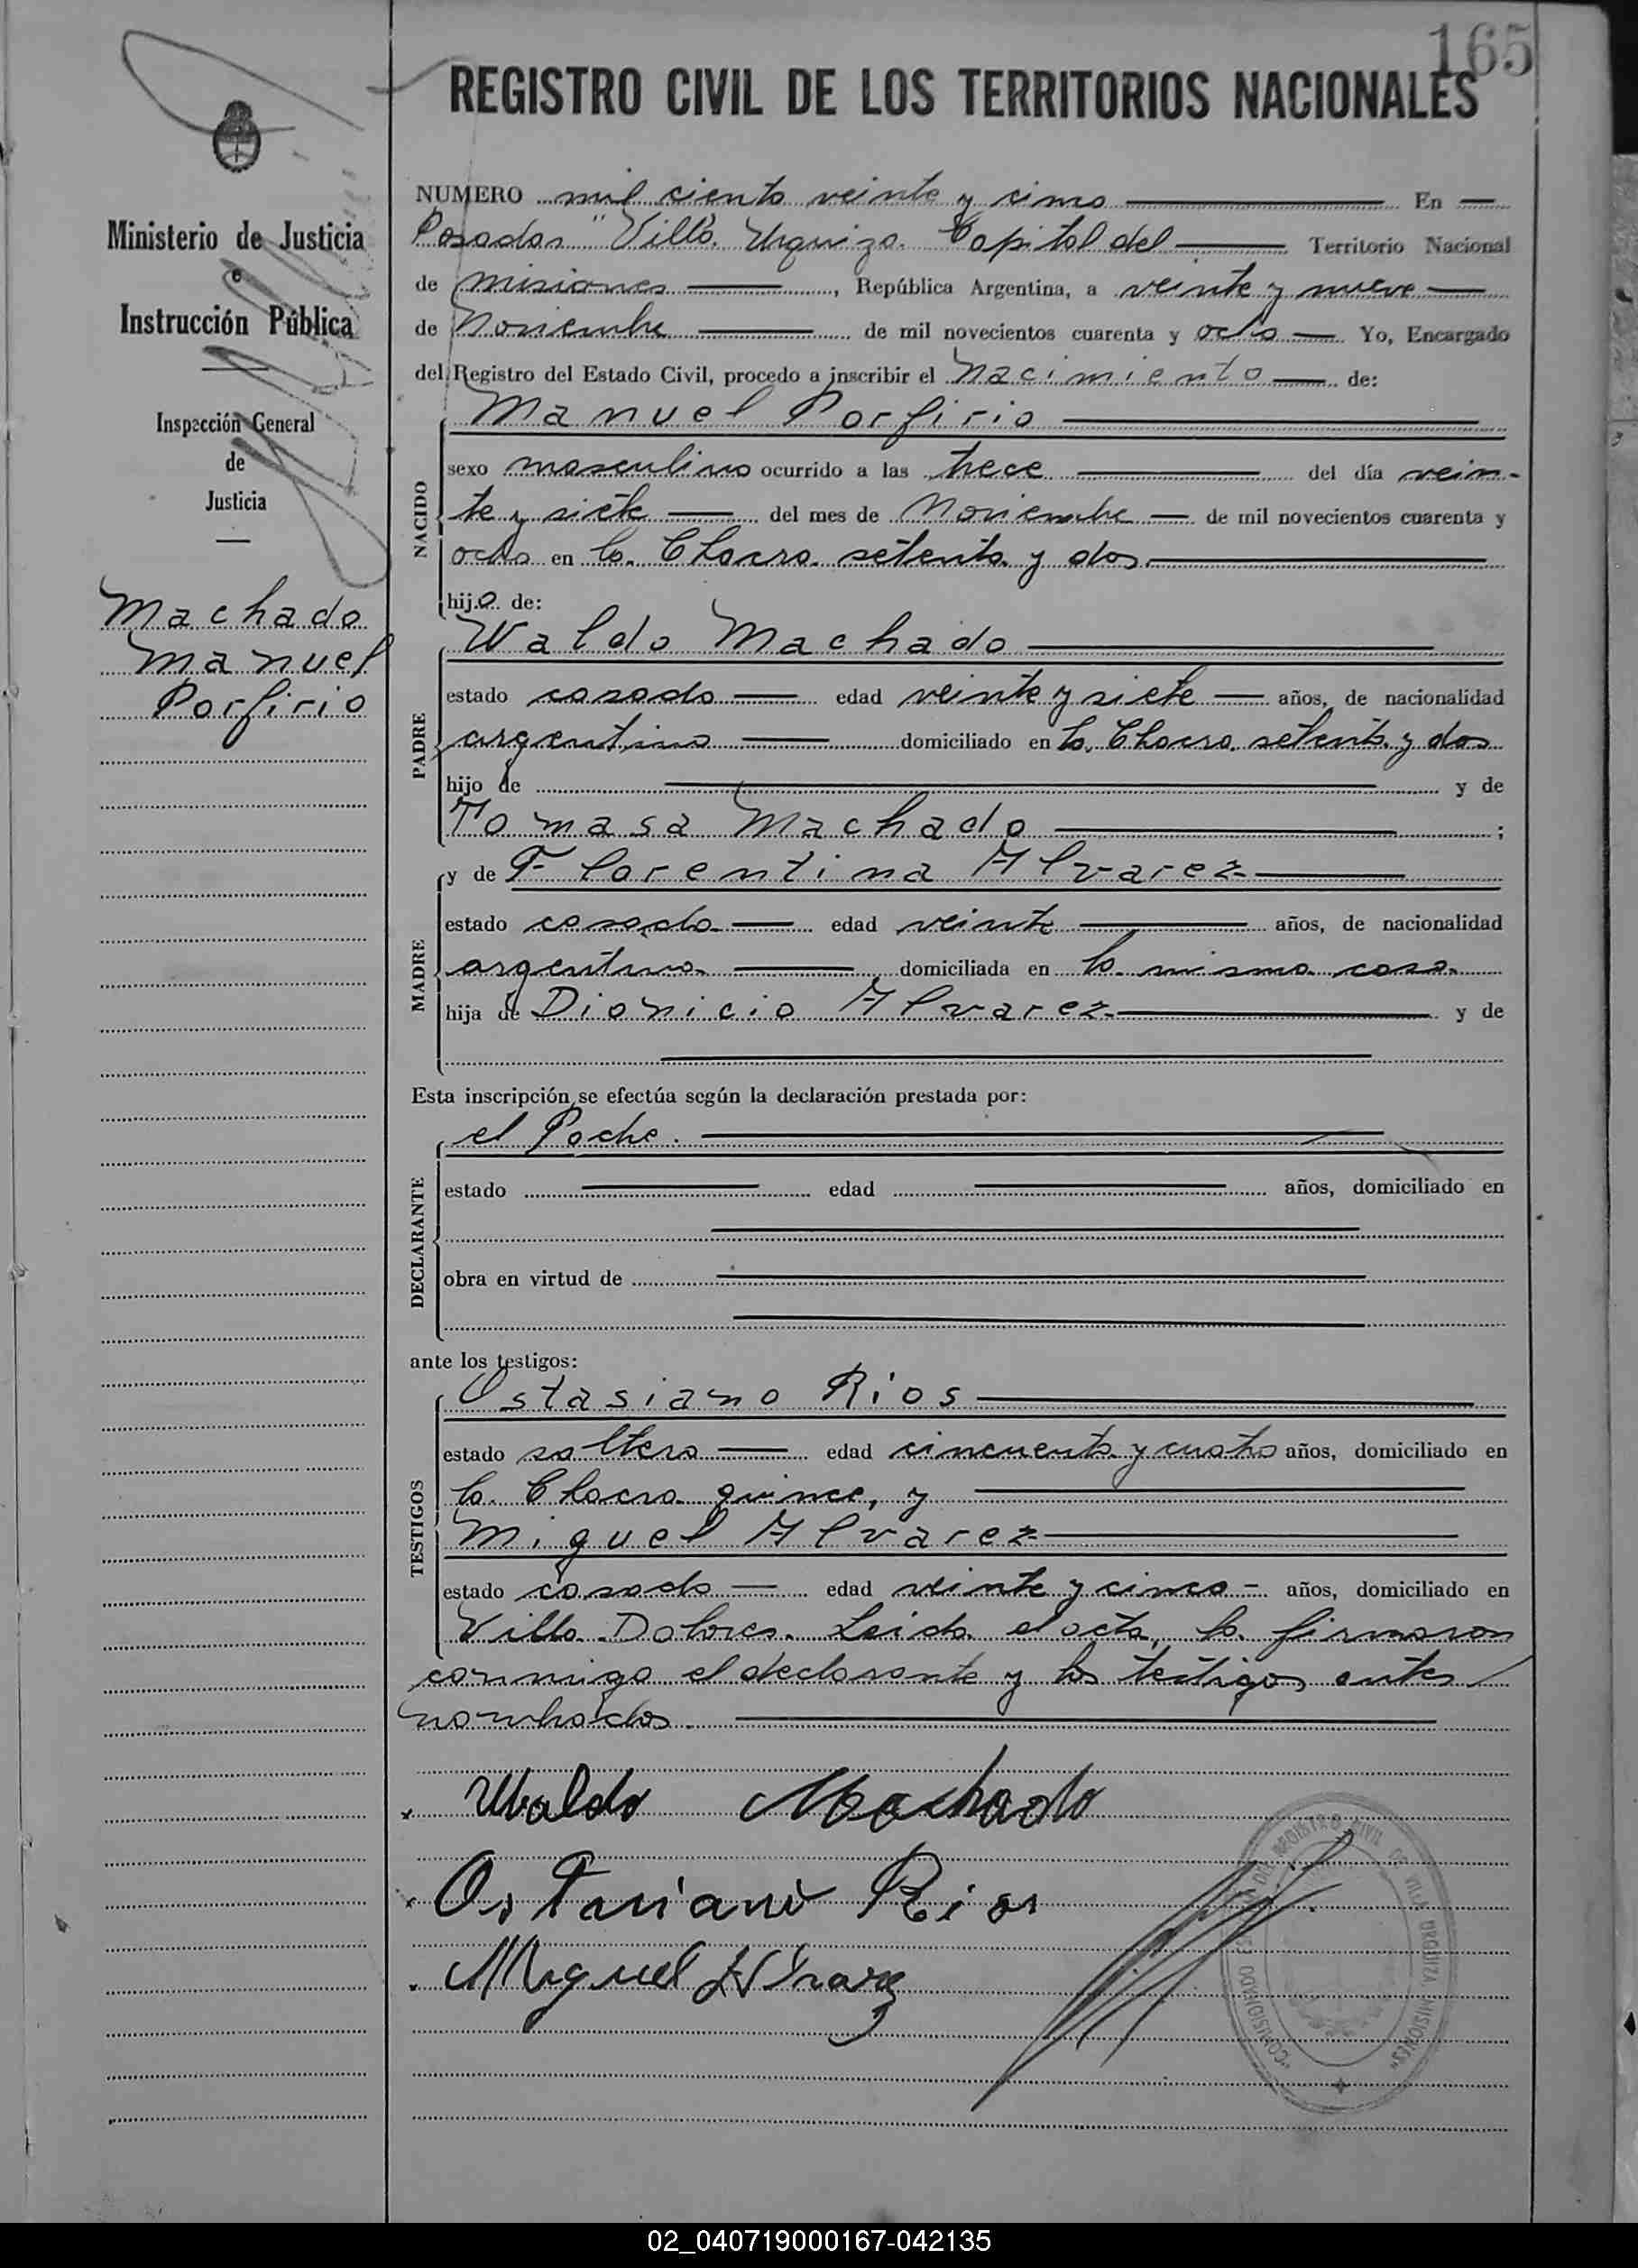 165
REGISTRO CIVIL DE LOS TERRITORIOS NACIONALES
Ministerio de Justicia
e
Instrucción Pública
Inspección General
de
Justicia
Machado
Manuel
Porfirio
NUMERO mil ciento veinte y cinco En
Posadas "Villa Urquiza Capital del Territorio Nacional
de Misiones, República Argentina, a veinte y nueve
de Noviembre de mil novecientos cuarenta y ocho Yo, Encargado
del Registro del Estado Civil, procedo a inscribir el Nacimiento de:
NACIDO
Manuel Porfirio
sexo masculino ocurrido a las trece del día vein-
te y siete del mes de Noviembre de mil novecientos cuarenta y
ocho en la Chacra setenta y dos
hijo de:
PADRE
Waldo Machado
estado casado edad veinte y siete años, de nacionalidad
argentino domiciliado en la Chacra setenta y dos
hijo de y de
Tomasa Machado ;
MADRE
y de Florentina Alvarez
estado casada edad veinte años, de nacionalidad
argentina domiciliada en la misma casa
hija de Dionicio Alvarez y de
Esta inscripción se efectúa según la declaración prestada por:
DECLARANTE
el Padre.
estado edad años, domiciliado en
obra en virtud de
ante los testigos:
TESTIGOS
Ostasiano Rios
estado soltero edad cincuenta y cuatro años, domiciliado en
la Chacra quince, y
Miguel Alvarez
estado casado edad veinte y cinco - años, domiciliado en
Villa Dolores. Leida el acta, la firmaron
conmigo el declarante y los testigos antes
nombrados.
Ubaldo Machado
Ostasiano Rios
Miguel Alvarez
COMISIONADO ESCOLTA DEL REGISTRO CIVIL DE VILLA URQUIZA MISIONES
02_040719000167-042135